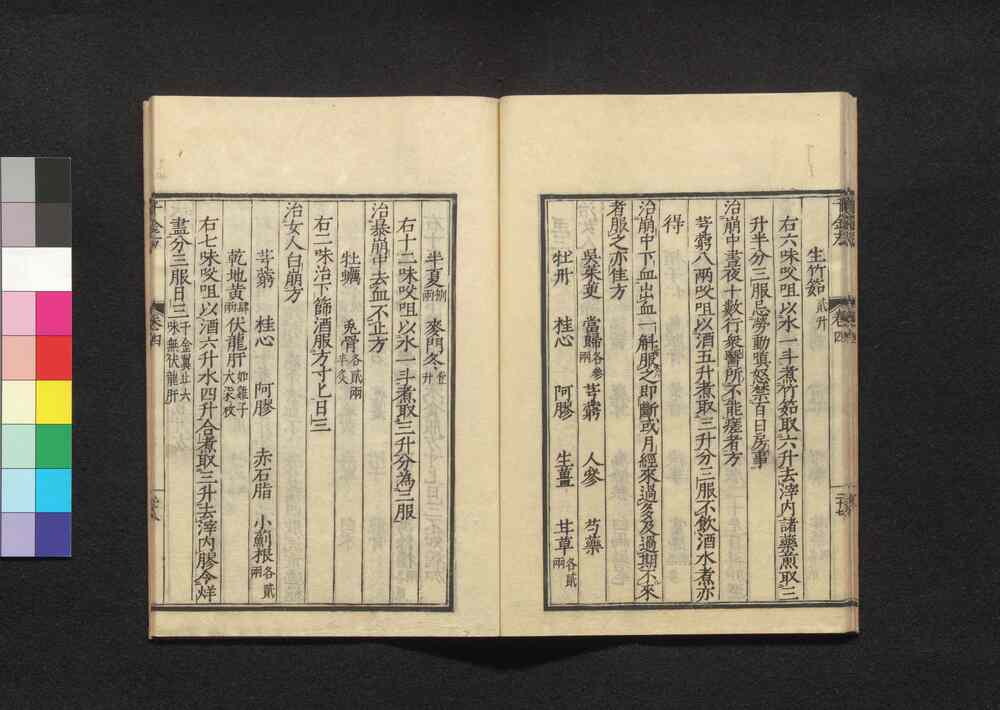 生竹筎貳升
右六味㕮咀以水一斗煮竹筎取六升去滓内諸藥煎取三
升半分三服忌勞動嗔怒禁百日房事
治崩中晝夜十數行衆醫所不能瘥者方
芎藭八兩㕮咀以酒五升煮取三升分三服不飲酒水煮亦
得
治崩中下血出血一斛服之即斷或月經來過多及過期不來
者服之亦佳方
吳茱萸 當歸各參兩 芎藭 人參 芍藥
牡丹 桂心 阿膠 生薑 甘草各貳兩
卷四
半夏捌兩 麥門冬壹升
右十二味㕮咀以水一斗煮取三升分為三服
治暴崩中去血不止方
牡蠣 兎骨各貳兩半炙
右二味治下篩酒服方寸匕日三
治女人白崩方
芎藭 桂心 阿膠 赤石脂 小薊根各貳兩
乾地黄肆兩 伏龍肝如雞子大柒枚
右七味㕮咀以酒六升水四升合煮取三升去滓内膠令烊
盡分三服日三千金翼止六味無伏龍肝
千金方
卷四